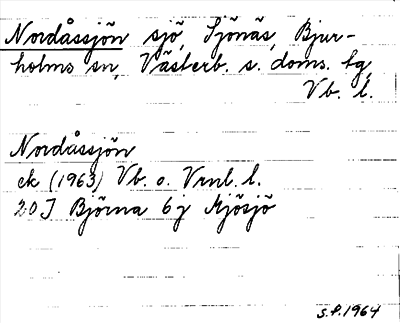 Nordåssjön sjö, Sjönäs, Bjur-
holms sn, Västerb. s. doms. tg,
Vb. l.
Nordåssjön
ek (1963) Vb. o. Vrnl. l.
20J Björna 6j Mjösjö
S.P. 1964